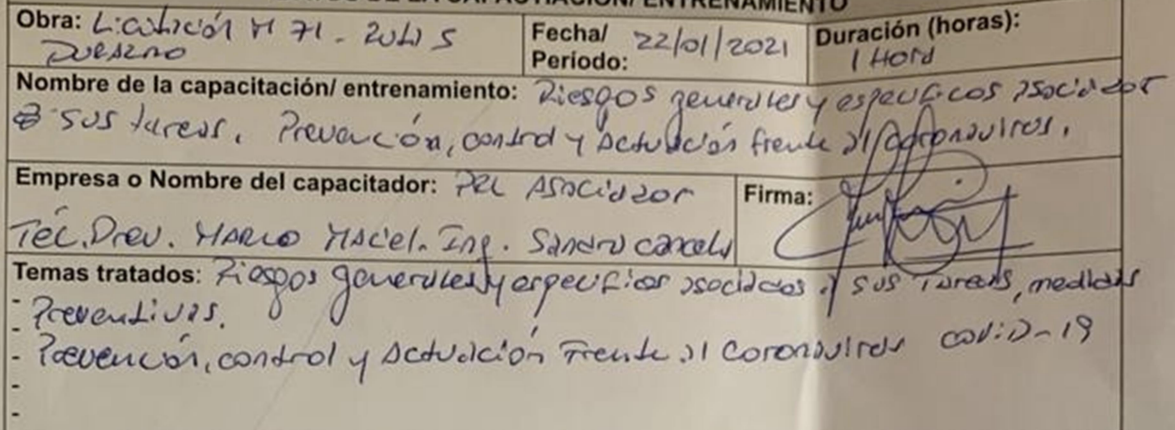 DE LA CAPACITACIÓN/ ENTRENAMIENTO
Obra: Licitación M 71 - 
DURAZNO
Fecha/ Período: 22/01/2021
Duración (horas):
1 Hora
Nombre de la capacitación/ entrenamiento: Riesgos generales y especificos asociados
a sus tareas. Prevención, control y Actuación frente al Coronavirus.
Empresa o Nombre del capacitador: PCL Asociados
Téc. Prev. MARCO MACiel. Ing. Sandro
Firma:
Temas tratados: Riesgos generales y especificos asociados a sus Tareas, medidas
- Preventivas.
- Prevención, control y Actuación Frente al Coronavirus covid-19
-
-